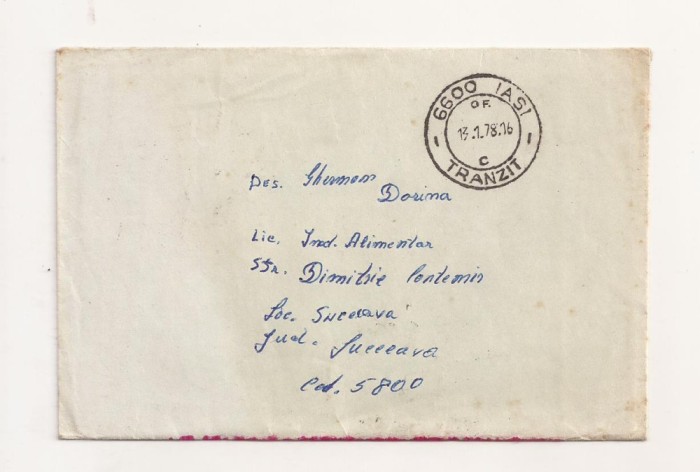 6600 IASI
OF.
13.1.78.16
C
TRANZIT
Des. Ghermam
Dorina
Lic. Ind. Alimentar
Str. Dimitrie Cantemir
Loc. Suceava
Jud. Suceava
Cod. 5800